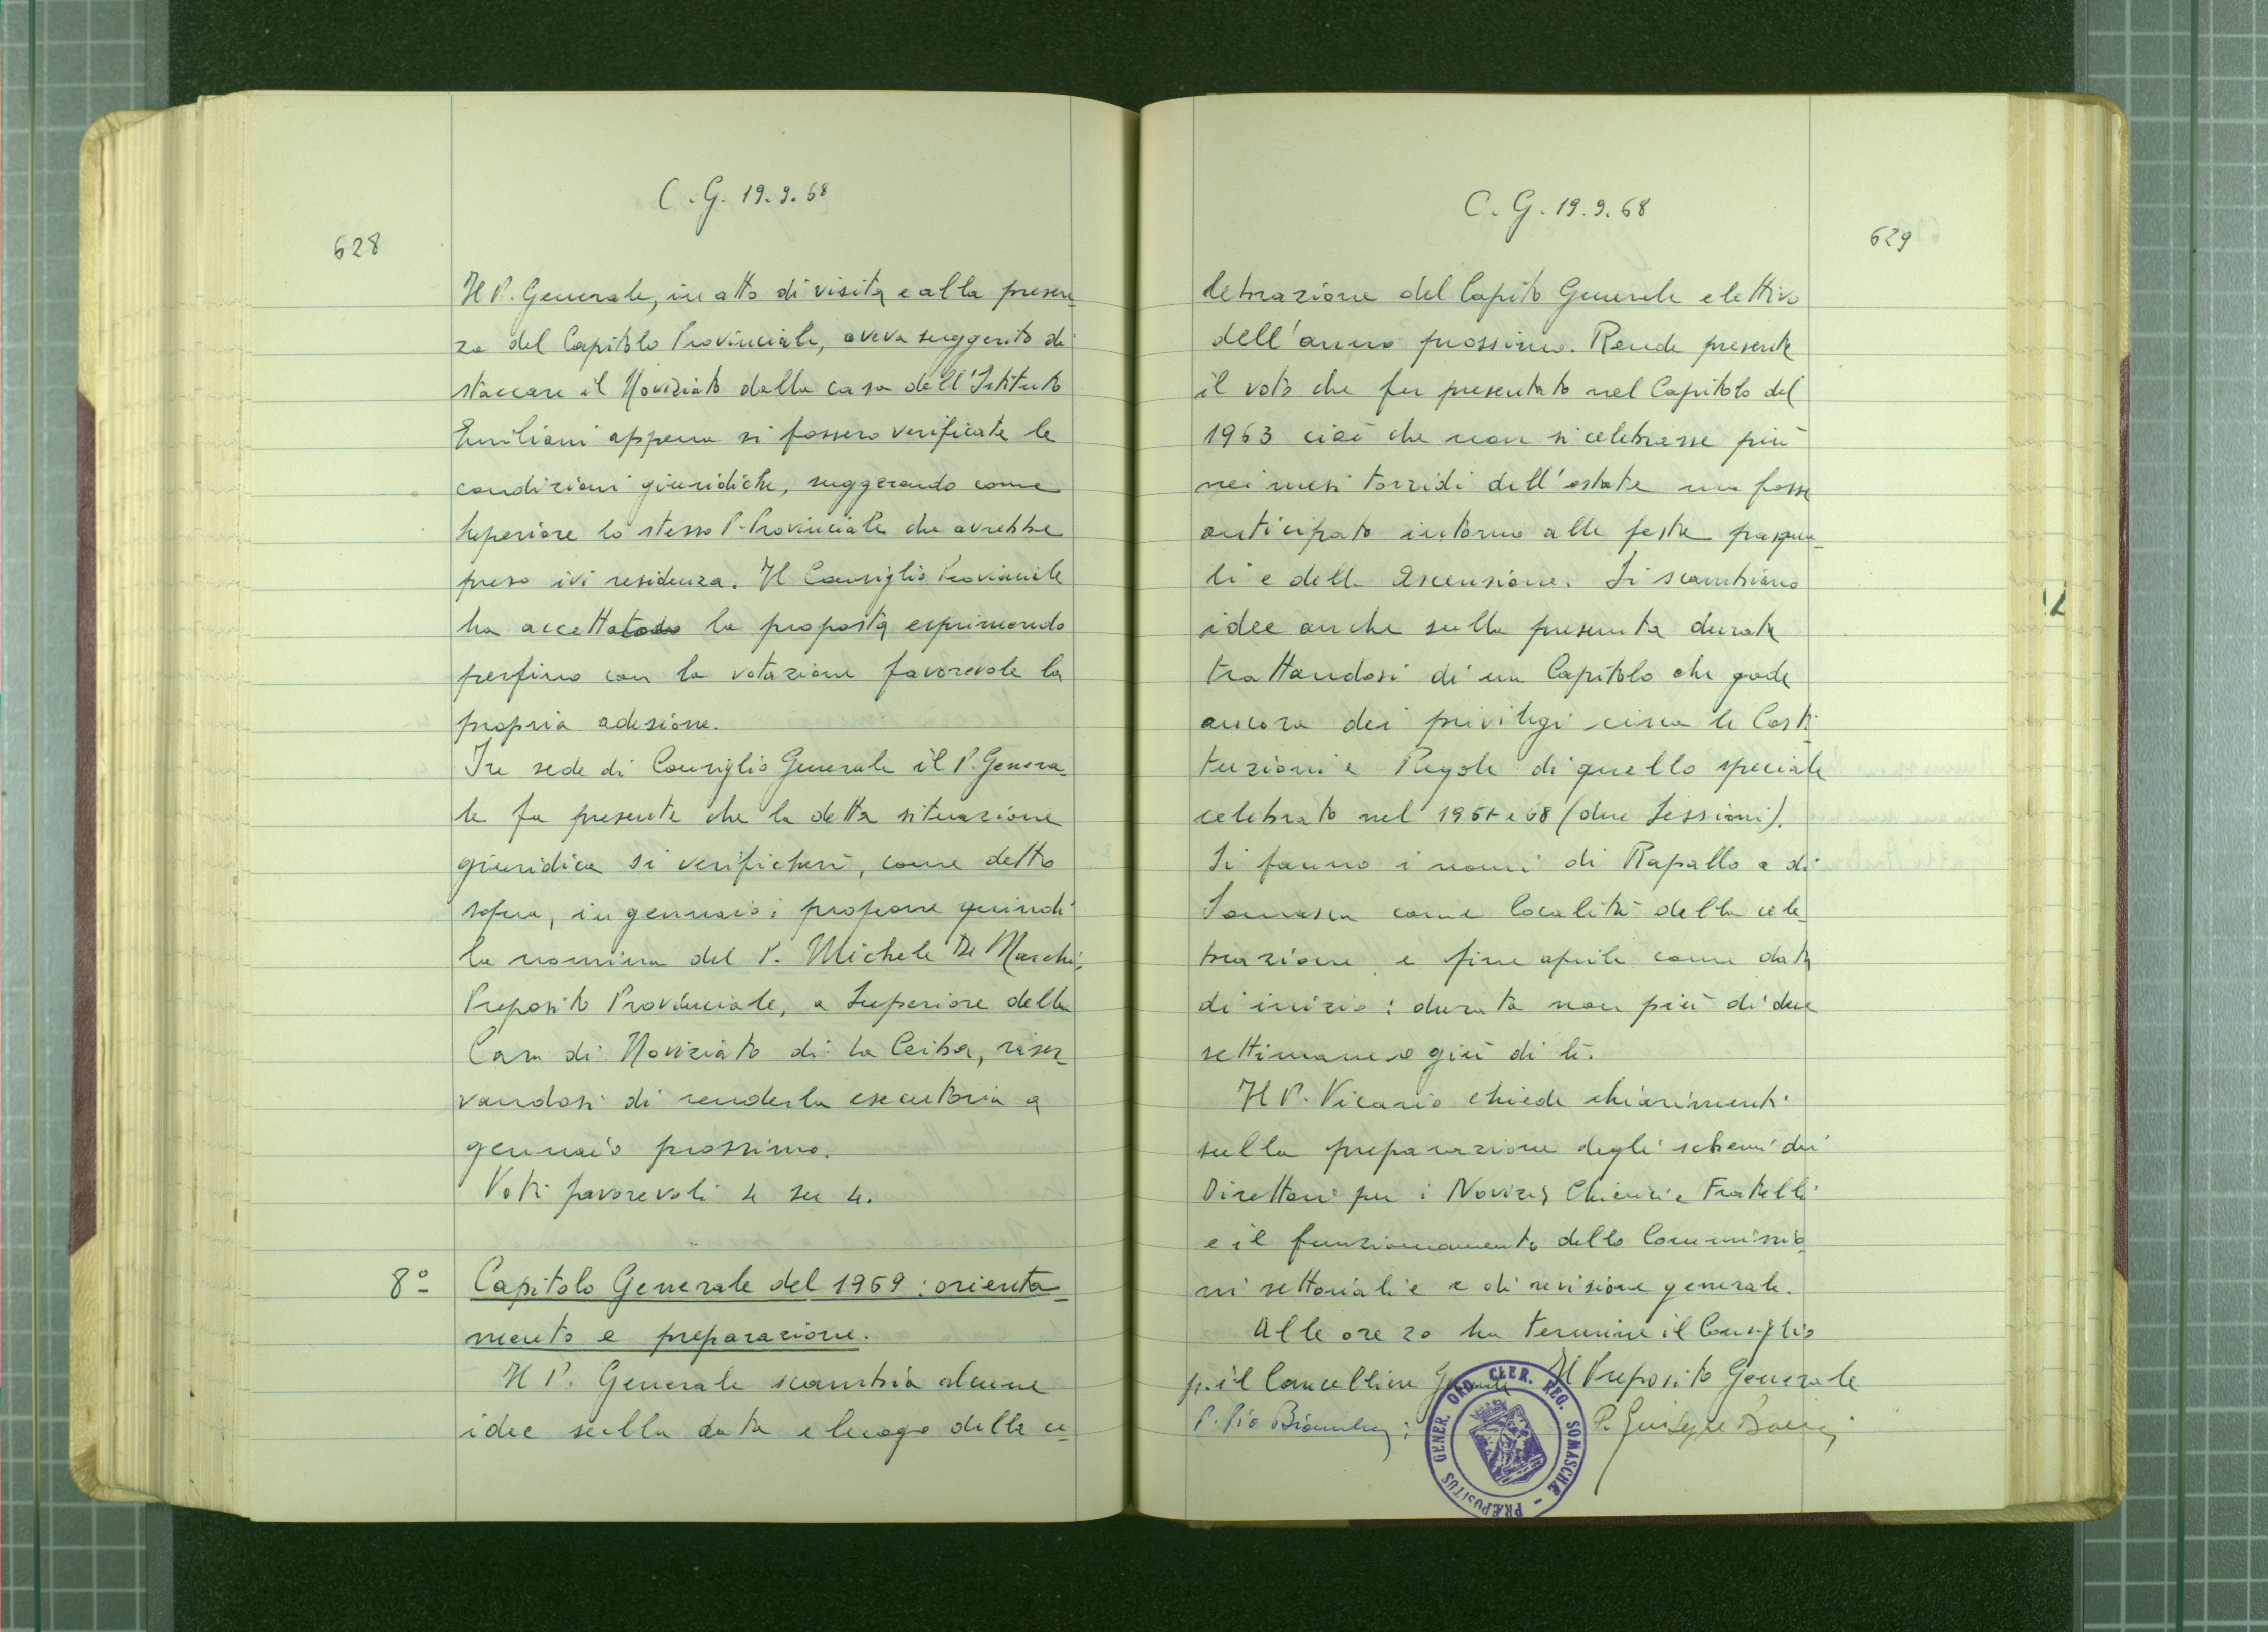 C.G. 19.9.68
628
Il P. Generale, in atto di visita e alla presen-
za del Capitolo Provinciale, aveva suggerito di
staccare il Noviziato dalla casa dell'Istituto
Emiliani appena si fossero verificate le
condizioni giuridiche, suggerendo come
Superiore lo stesso P. Provinciale che avrebbe
preso ivi residenza. Il Consiglio Provinciale
ha accettato la proposta esprimendo
perfino con la votazione favorevole la
propria adesione.
In sede di Consiglio Generale il P. Genera-
le fa presente che la detta situazione
giuridica si verificherà, come detto
sopra, in gennaio: propone quindi
la nomina del P. Michele De Marchi,
Preposito Provinciale, a Superiore della
Casa di Noviziato di La Ceiba, riser-
vandosi di renderla esecutoria a
gennaio prossimo.
Voti favorevoli 4 su 4.
8º Capitolo Generale del 1969: orienta-
mento e preparazione.
Il P. Generale scambia alcune
idee sulla data e luogo della ce-
C.G. 19.9.68
629
lebrazione del Capito Generale elettivo
dell'anno prossimo. Rende presente
il voto che fu presentato nel Capitolo del
1963 cioè che non si celebrasse più
nei mesi torridi dell'estate ma fosse
anticipato intorno alle feste pasqua-
li e della Ascensione. Si scambiano
idee anche sulla presunta durata
trattandosi di un Capitolo che gode
ancora dei privilegi circa le Costi-
tuzioni e Regole di quello speciale
celebrato nel e 68 (due Sessioni).
Si fanno i nomi di Rapallo e di
Somasca come località della cele-
brazione e fine aprile come data
di inizio: durata non più di due
settimane o giù di lì.
Il P. Vicario chiede chiarimenti
sulla preparazione degli schemi dei
Direttori per i Novizi, Chierici e Fratelli
e il funzionamento delle Commissio-
ni settoriali e e di revisione generale.
Alle ore 20 ha termine il Consiglio
p. il Cancelliere Generale Il Preposito Generale
P. Pio Bianchi P. Giuseppe
PRÆPOSITUS GENER. ORD. CLER. REG. SOMASCHÆ